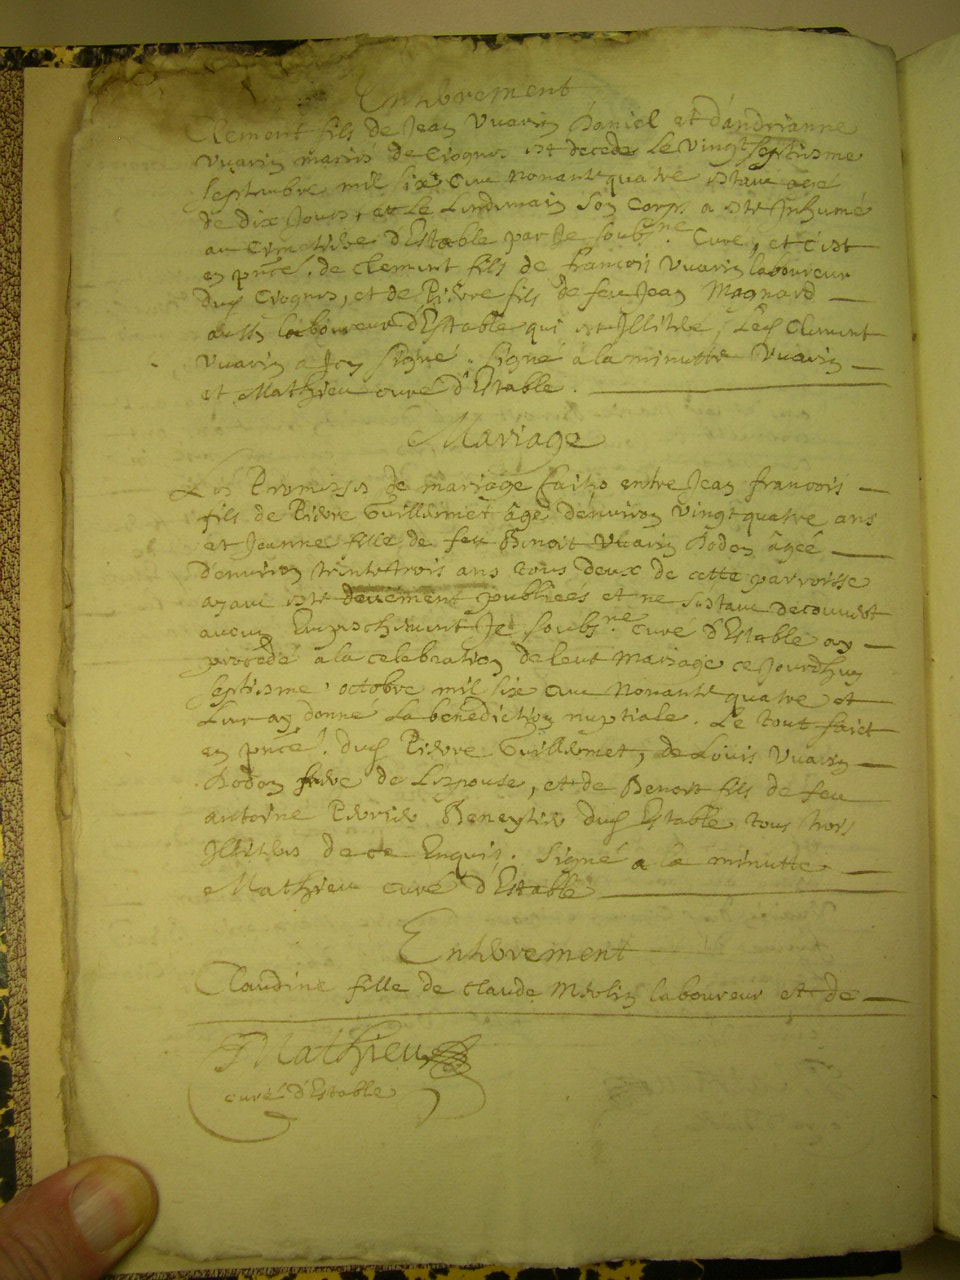 Enterrement
Clement fils de Jean Vvarin Daniel et d'andrianne
Vvarin mariés de Crognes est decede le vingt septiesme
septembre mil six cens nonante quatre estant agé
de dix jours, et le lendemain son corps a esté inhumé
au cimetiere d'Estable par Je soubs.né Curé, et c'est
en pnce. de clement fils de francois Vvarin laboureur
dud Crognes, et de Pierre fils de feu Jean Magnard
aussy laboureur d'Estable qui est Illitere, Led Clement
Vvarin a Icy signé. signé a la minutte Vvarin
et Mathieu curé d'Estable.
Mariage
Les Promesses de mariage faites entre Jean francois
fils de Pierre Guillermet âgé d'environ vingt quatre ans
et Jeanne fille de feu Benoit Vvarin Dodon âgée
d'environ trente trois ans tous deux de cette parroisse
ayant esté deuement publiées et ne s'estant decouvert
aucun Empechement Je soubs.né curé d'Estable ay
procedé a la celebration de leur Mariage ce jourdhuy
septiesme octobre mil six cens nonante quatre et
Leur ay donné la benediction nuptiale. Le tout faict
en pnce. dud Pierre Guillermet, de Louis Vvarin
Dodon frere de L'epouse, et de Benoit fils de feu
antoine Perrier Beneytier dud Estable tous trois
Illiteres de ce Enquis. signé a la minutte
Mathieu curé d'Estable
Enterrement
Claudine fille de claude Merlin laboureur et de
Mathieu
curé d'Estable